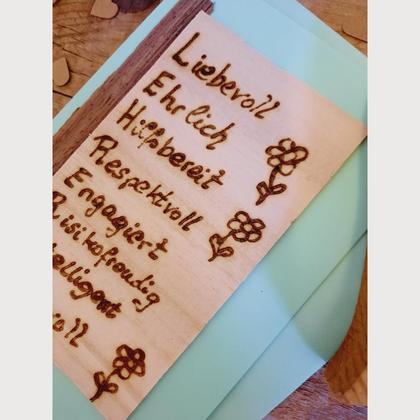 Liebevoll
Ehrlich
Hilfsbereit
Respektvoll
Engagiert
Risikofreudig
telligent
oll